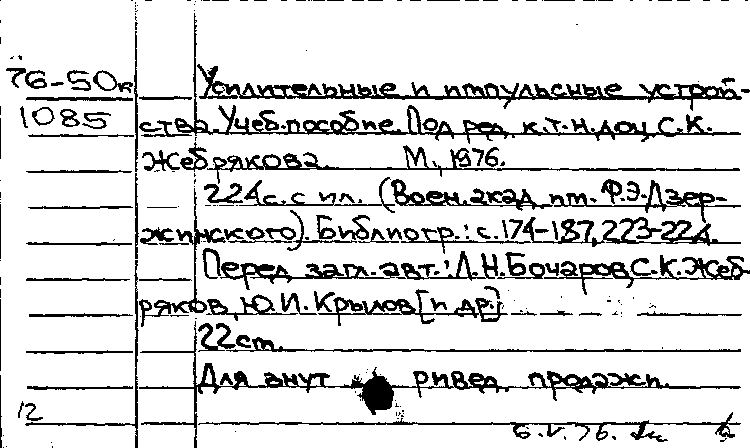 76-50к Усилительные и импульсные устрой-
1085 ства. Учеб. пособие. Под ред. к.т.н. доц. С.К.
Жебрякова. М., 1976.
224с. с ил. (Воен. акад. им. Ф.Э. Дзер-
жинского). Библиогр.: с. 174-187, 223-224.
Перед загл. авт.: Л.Н. Бочаров, С.К. Жеб-
ряков, Ю.И. Крылов [и др.]
22см.
Для внут ривед. продажи.
12
6.V.76.